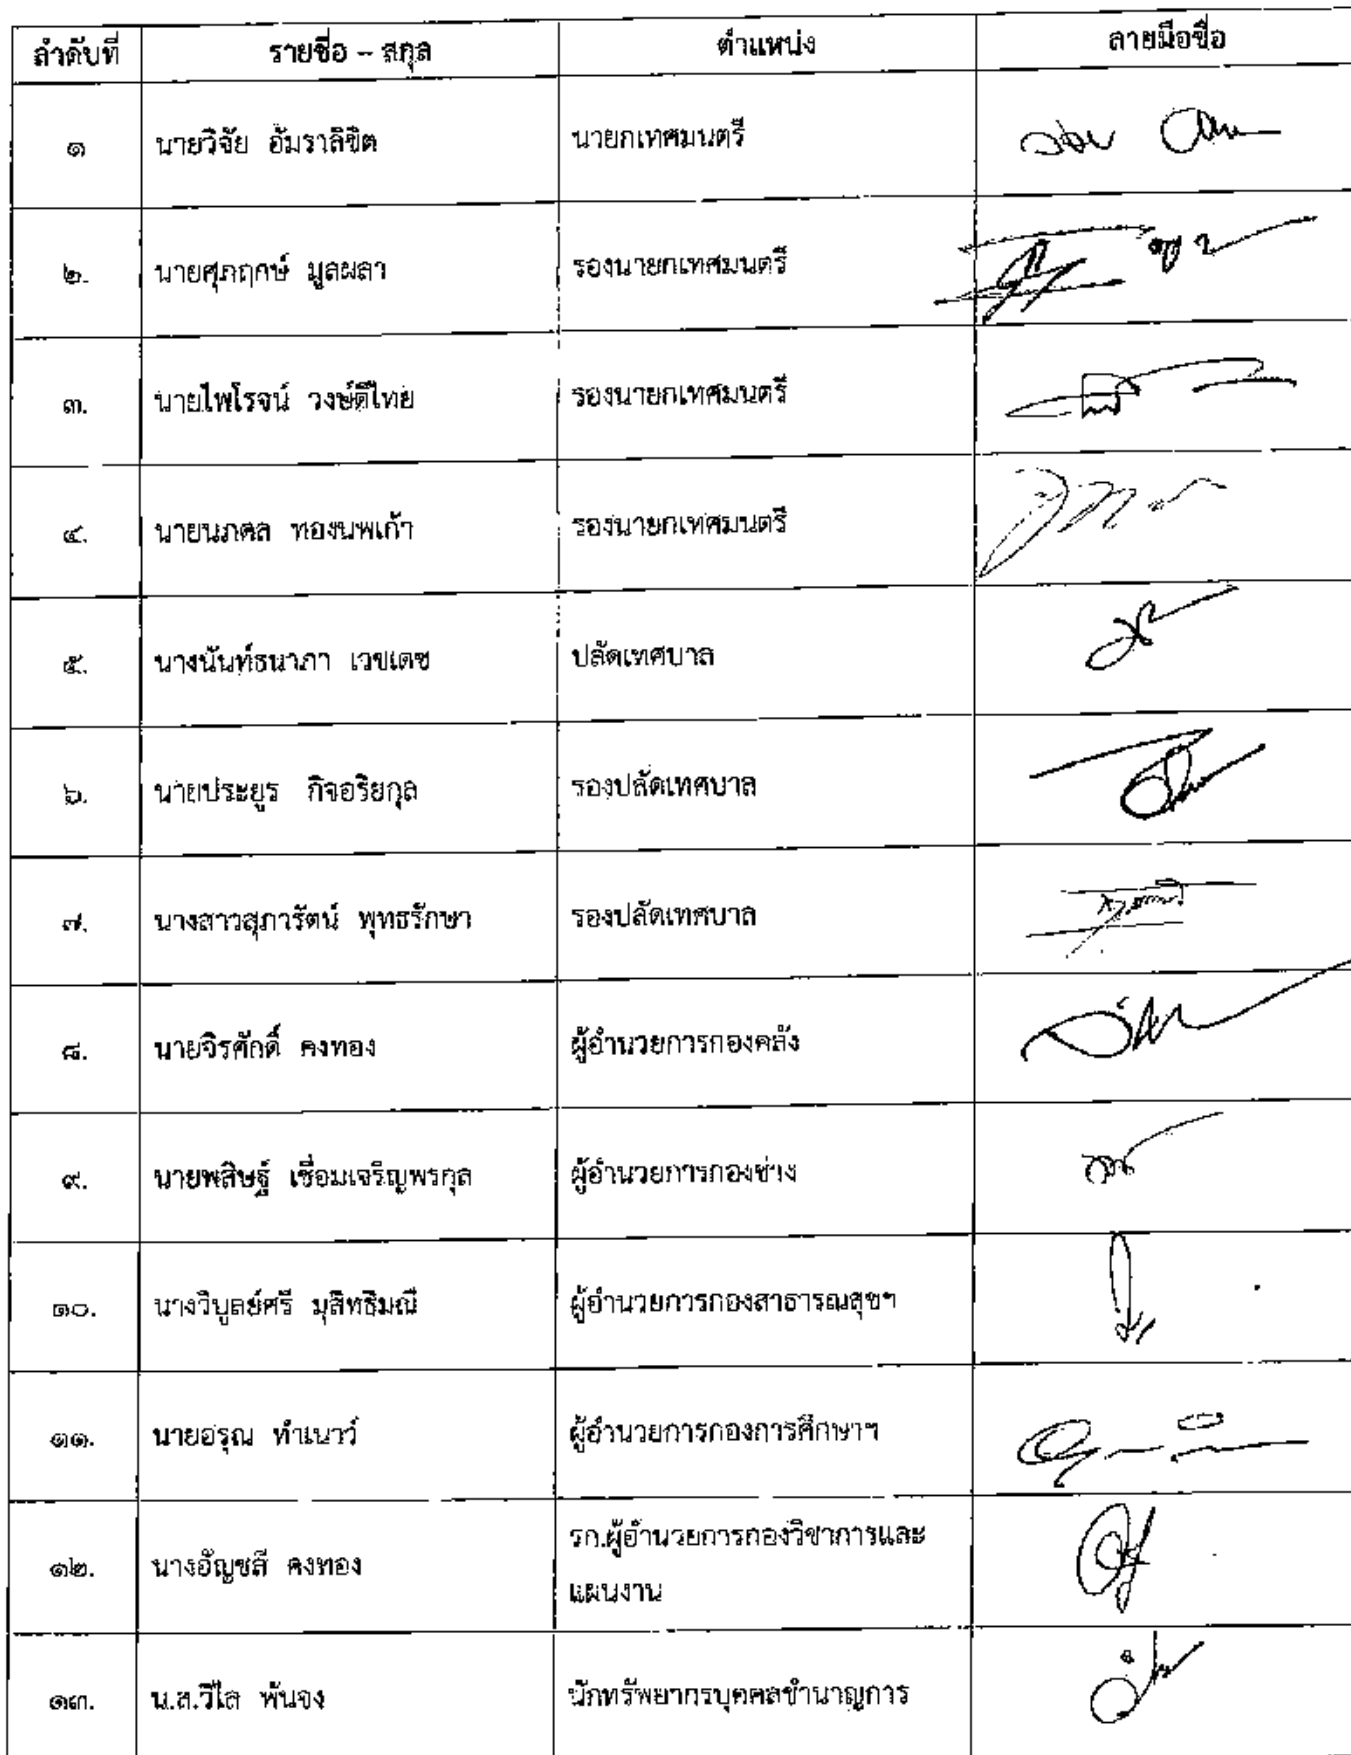 ลำดับที่ รายชื่อ – สกุล ตำแหน่ง ลายมือชื่อ
๑ นายวิจัย อัมราลิขิต นายกเทศมนตรี
๒. นายศุภฤกษ์ มูลผลา รองนายกเทศมนตรี
๓. นายไพโรจน์ วงษ์ดีไทย รองนายกเทศมนตรี
๔. นายนภดล ทองนพเก้า รองนายกเทศมนตรี
๕. นางนันท์ธนาภา เวชเดช ปลัดเทศบาล
๖. นายประยูร กิจอริยกุล รองปลัดเทศบาล
๗. นางสาวสุภารัตน์ พุทธรักษา รองปลัดเทศบาล
๘. นายจิรศักดิ์ คงทอง ผู้อำนวยการกองคลัง
๙. นายพสิษฐ์ เชื่อมเจริญพรกุล ผู้อำนวยการกองช่าง
๑๐. นางวิบูลย์ศรี มุสิทธิมณี ผู้อำนวยการกองสาธารณสุขฯ
๑๑. นายอรุณ ทำเนาว์ ผู้อำนวยการกองการศึกษาฯ
๑๒. นางอัญชลี คงทอง รก.ผู้อำนวยการกองวิชาการและ
แผนงาน
๑๓. น.ส.วิไล พันจง นักทรัพยากรบุคคลชำนาญการ